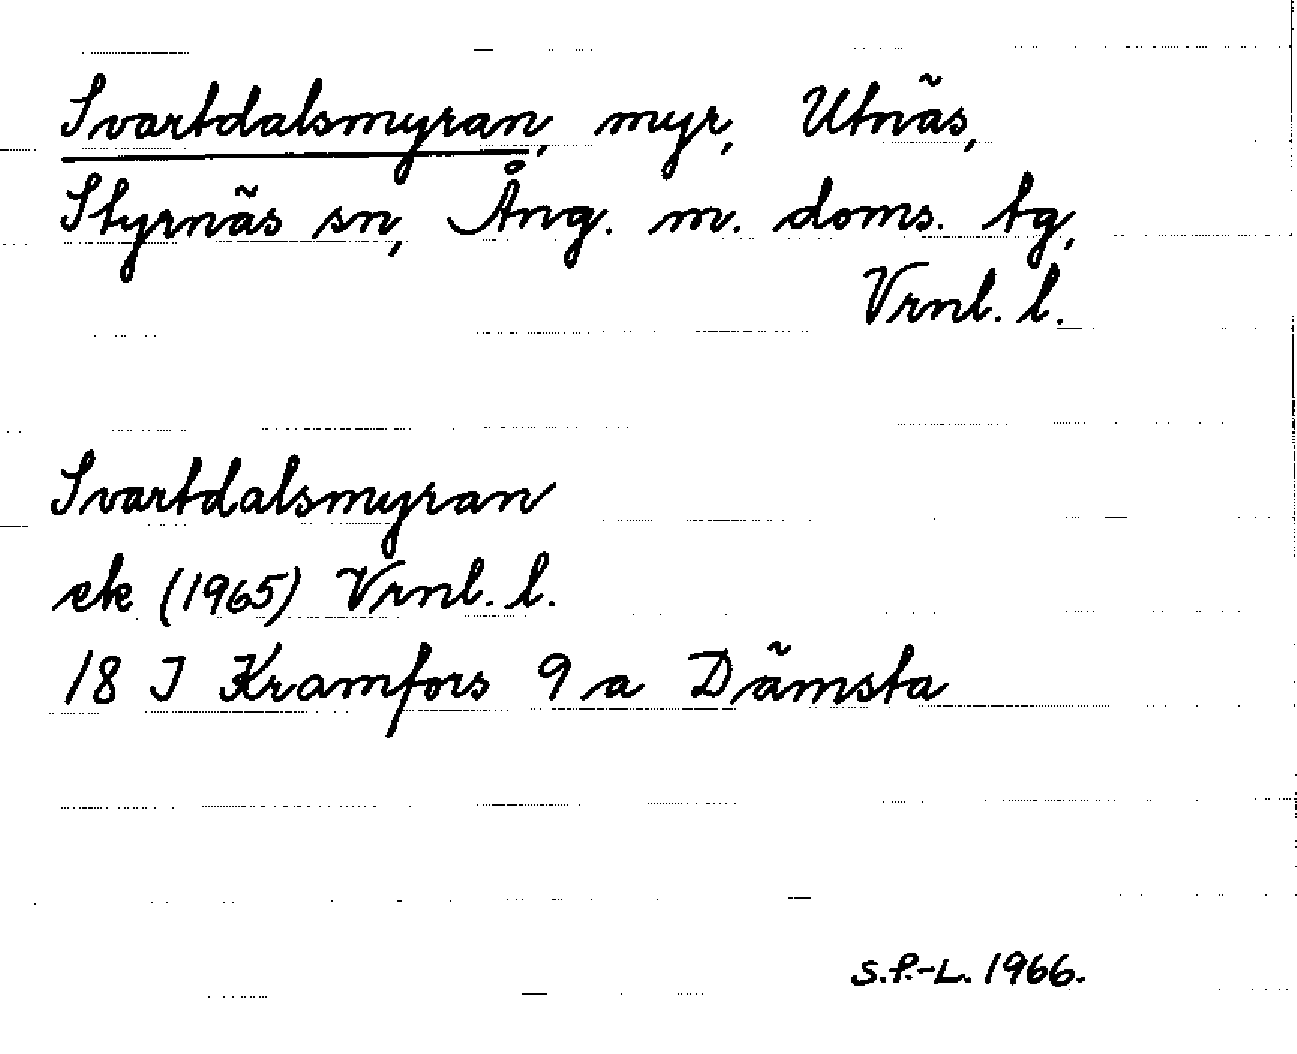 Svartdalsmyran, myr, Utnäs,
Styrnäs sn, Ång. m. doms. tg,
Vrnl. l.
Svartdalsmyran
ek (1965) Vrnl. l.
18 I Kramfors 9 a Dämsta
S.P.-L. 1966.